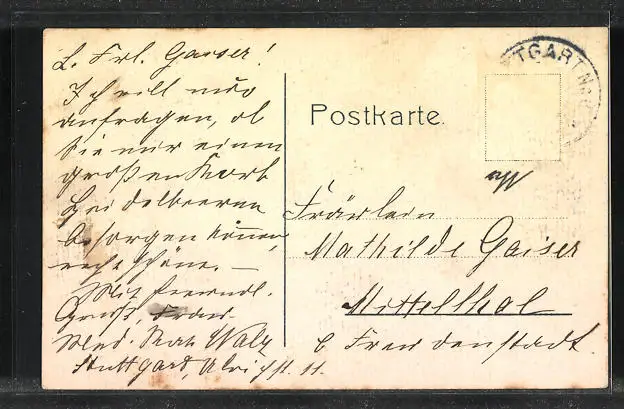 L. Frl. Gaiser!
Ich will nur
anfragen, ob
Sie mir einen
großen Korb
Heidelbeeren
besorgen können,
recht schöne. —
Mit freundl.
Gruß, Frau
Med. Rath Walz
Stuttgart, Ulrichst. 11.
TGART
Postkarte.
Fräulein
Mathilde Gaiser
Mittelthal
b Freudenstadt.